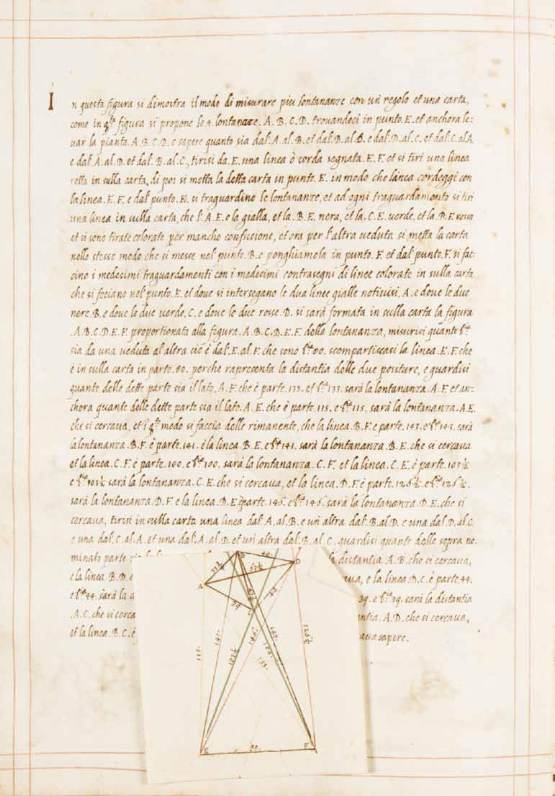 In questa figura si dimostra il modo di misurare piu lontananze con un regolo et una carta,
come in q.ta figura si propone le 4. lontananze. A. B. C. D. trouandoci in punto. E. et anchora le-
uar la pianta. A B C D. e sapere quanto sia dal. A. al. B. et dal. B. al. D. e dal. D. al. C. et dal. C. al. A.
e dal. A. al. D. et dal. B. al. C., tirisi da. E. una linea ò corda segnata. E. F. et si tiri una linea
retta in sulla carta, di poi si metta la detta carta in punto. E. in modo che la linea cordeggi con
la linea. E. F. e dal punto. E. si traguardino le lontananze, et ad ogni traguardamento si tiri
una linea in sulla carta, che l'. A. E. e la gialla, et la. B. E. nera, et la. C. E. uerde, et la. D. E. rossa
et si sono tirate colorate per mancho confusione, et ora per l'altra ueduta si metta la carta
nello stesso modo che si messe nel punto. E. e ponghiamola in punto. F. et dal punto. F. si fac-
cino i medecimi traguardamenti con i medecimi contrasegni di linee colorate in sulla carta
che si feciano nel punto. E. et doue si intersegano le dua linee gialle notisisi. A. e doue le due
nere. B. e doue le due uerde. C. e doue le due rosse. D. si sarà formata in sulla carta la figura
. A B C D E F. proportionata alla figura. A. B. C. D. E. F. della lontananza, misurisi quante b.a
sia da una ueduta al altra cio è dal. E. al. F. che sono b.a 60. scompartiscasi la linea. E. F. che
è in sulla carta in parte. 60. perche rapresenta la distantia delle due positure, e guardisi
quante delle dette parte sia il lato. A. F. che è parte. 133. et b.a 133. sarà la lontananza. A. F. et an-
chora quante delle dette parte sia il lato. A. E. che è parte. 115. e b.a 115. sarà la lontananza. A. E.
che si cercaua, et i q.to modo si faccia delle rimanente, che la linea. B. F. è parte. 141. e b.a 141. sarà
la lontananza. B. F. è parte. 141. è la linea. B. E. e b.a 141. sarà la lontananza. B. E. che si cercaua
et la linea. C. F. è parte. 100. e b.a 100. sarà la lontananza. C. F. et la linea. C. E. è parte. 101½
e b.a 101½ sarà la lontananza. C. E. che si cercaua, et la linea. D. F. è parte. 126½. e b.a 126½.
sarà la lontananza. D. F. e la linea. D. E. è parte. 146. e b.a 146. sarà la lontananza. D. E. che si
cercaua, tirisi in sulla carta una linea dal. A. al. B. e un altra dal. B. al. D. e una dal. D. al. C.
e una dal. C. al. A. et una dal. A. al. D. et un altra dal. B. al. C., guardisi quante delle sopra no-
minati parte
distantia. A. B. che si cercaua,
e la linea. B. D. e
e la linea. D. C. è parte. 44.
e b.a 44. sarà la
39. e b.a 39. sarà la distantia
. A. C. che si cerca
. A. D. che si cercaua,
et la linea. B. C. è
sapere.
A
D
E
F
60